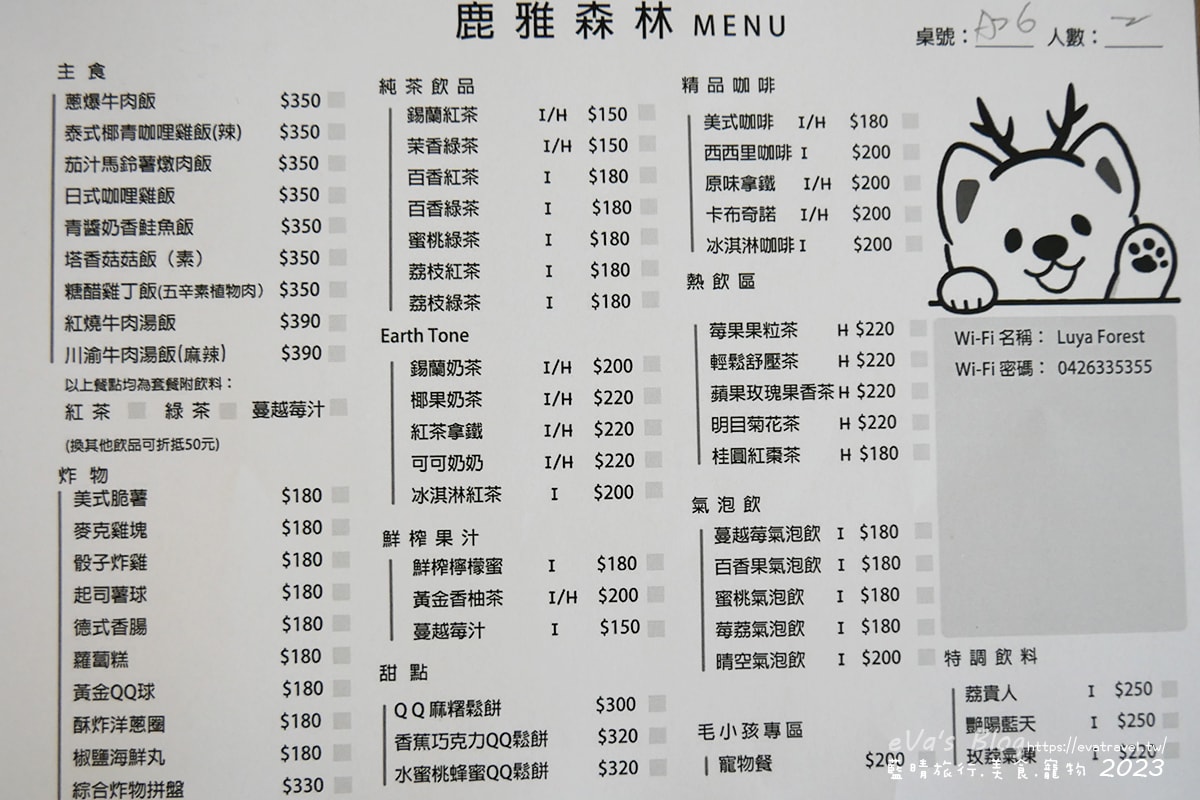 鹿雅森林 MENU
桌號：A06 人數：2
主食
蔥爆牛肉飯 $350
泰式椰青咖哩雞飯(辣) $350
茄汁馬鈴薯燉肉飯 $350
日式咖哩雞飯 $350
青醬奶香鮭魚飯 $350
塔香菇菇飯（素） $350
糖醋雞丁飯(五辛素植物肉） $350
紅燒牛肉湯飯 $390
川渝牛肉湯飯(麻辣) $390
以上餐點均為套餐附飲料：
紅茶 綠茶 蔓越莓汁
(換其他飲品可折抵50元)
炸物
美式脆薯 $180
麥克雞塊 $180
骰子炸雞 $180
起司薯球 $180
德式香腸 $180
蘿蔔糕 $180
黃金QQ球 $180
酥炸洋蔥圈 $180
椒鹽海鮮丸 $180
綜合炸物拼盤 $330
純茶飲品
錫蘭紅茶 I/H $150
茉香綠茶 I/H $150
百香紅茶 I $180
百香綠茶 I $180
蜜桃綠茶 I $180
荔枝紅茶 I $180
荔枝綠茶 I $180
Earth Tone
錫蘭奶茶 I/H $200
椰果奶茶 I/H $220
紅茶拿鐵 I/H $220
可可奶奶 I/H $220
冰淇淋紅茶 I $200
鮮榨果汁
鮮榨檸檬蜜 I $180
黃金香柚茶 I/H $200
蔓越莓汁 I $150
甜點
QQ麻糬鬆餅 $300
香蕉巧克力QQ鬆餅 $320
水蜜桃蜂蜜QQ鬆餅 $320
精品咖啡
美式咖啡 I/H $180
西西里咖啡 I $200
原味拿鐵 I/H $200
卡布奇諾 I/H $200
冰淇淋咖啡 I $200
熱飲區
莓果果粒茶 H $220
輕鬆舒壓茶 H $220
蘋果玫瑰果香茶 H $220
明目菊花茶 H $220
桂圓紅棗茶 H $180
氣泡飲
蔓越莓氣泡飲 I $180
百香果氣泡飲 I $180
蜜桃氣泡飲 I $180
莓荔氣泡飲 I $180
晴空氣泡飲 I $200
毛小孩專區
寵物餐 $200
Wi-Fi 名稱： Luya Forest
Wi-Fi 密碼： 0426335355
特調飲料
荔貴人 I $250
艷陽藍天 I $250
玫荔氣凍 I $220
eVa's Blog https://evatravel.tw/
藍晴旅行.美食.寵物 2023